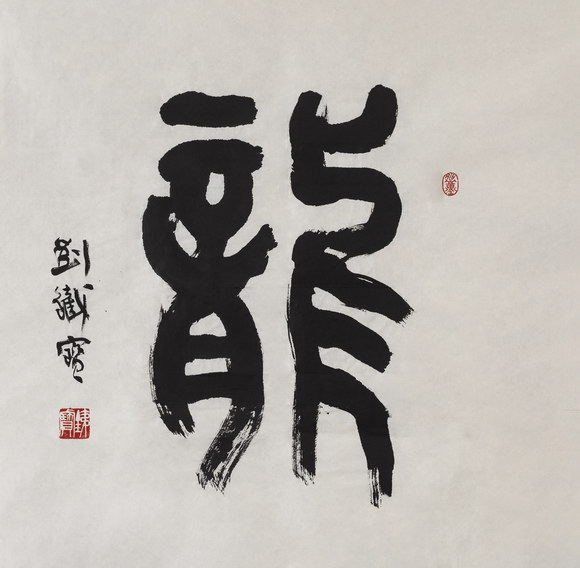 龍
劉鐵寶